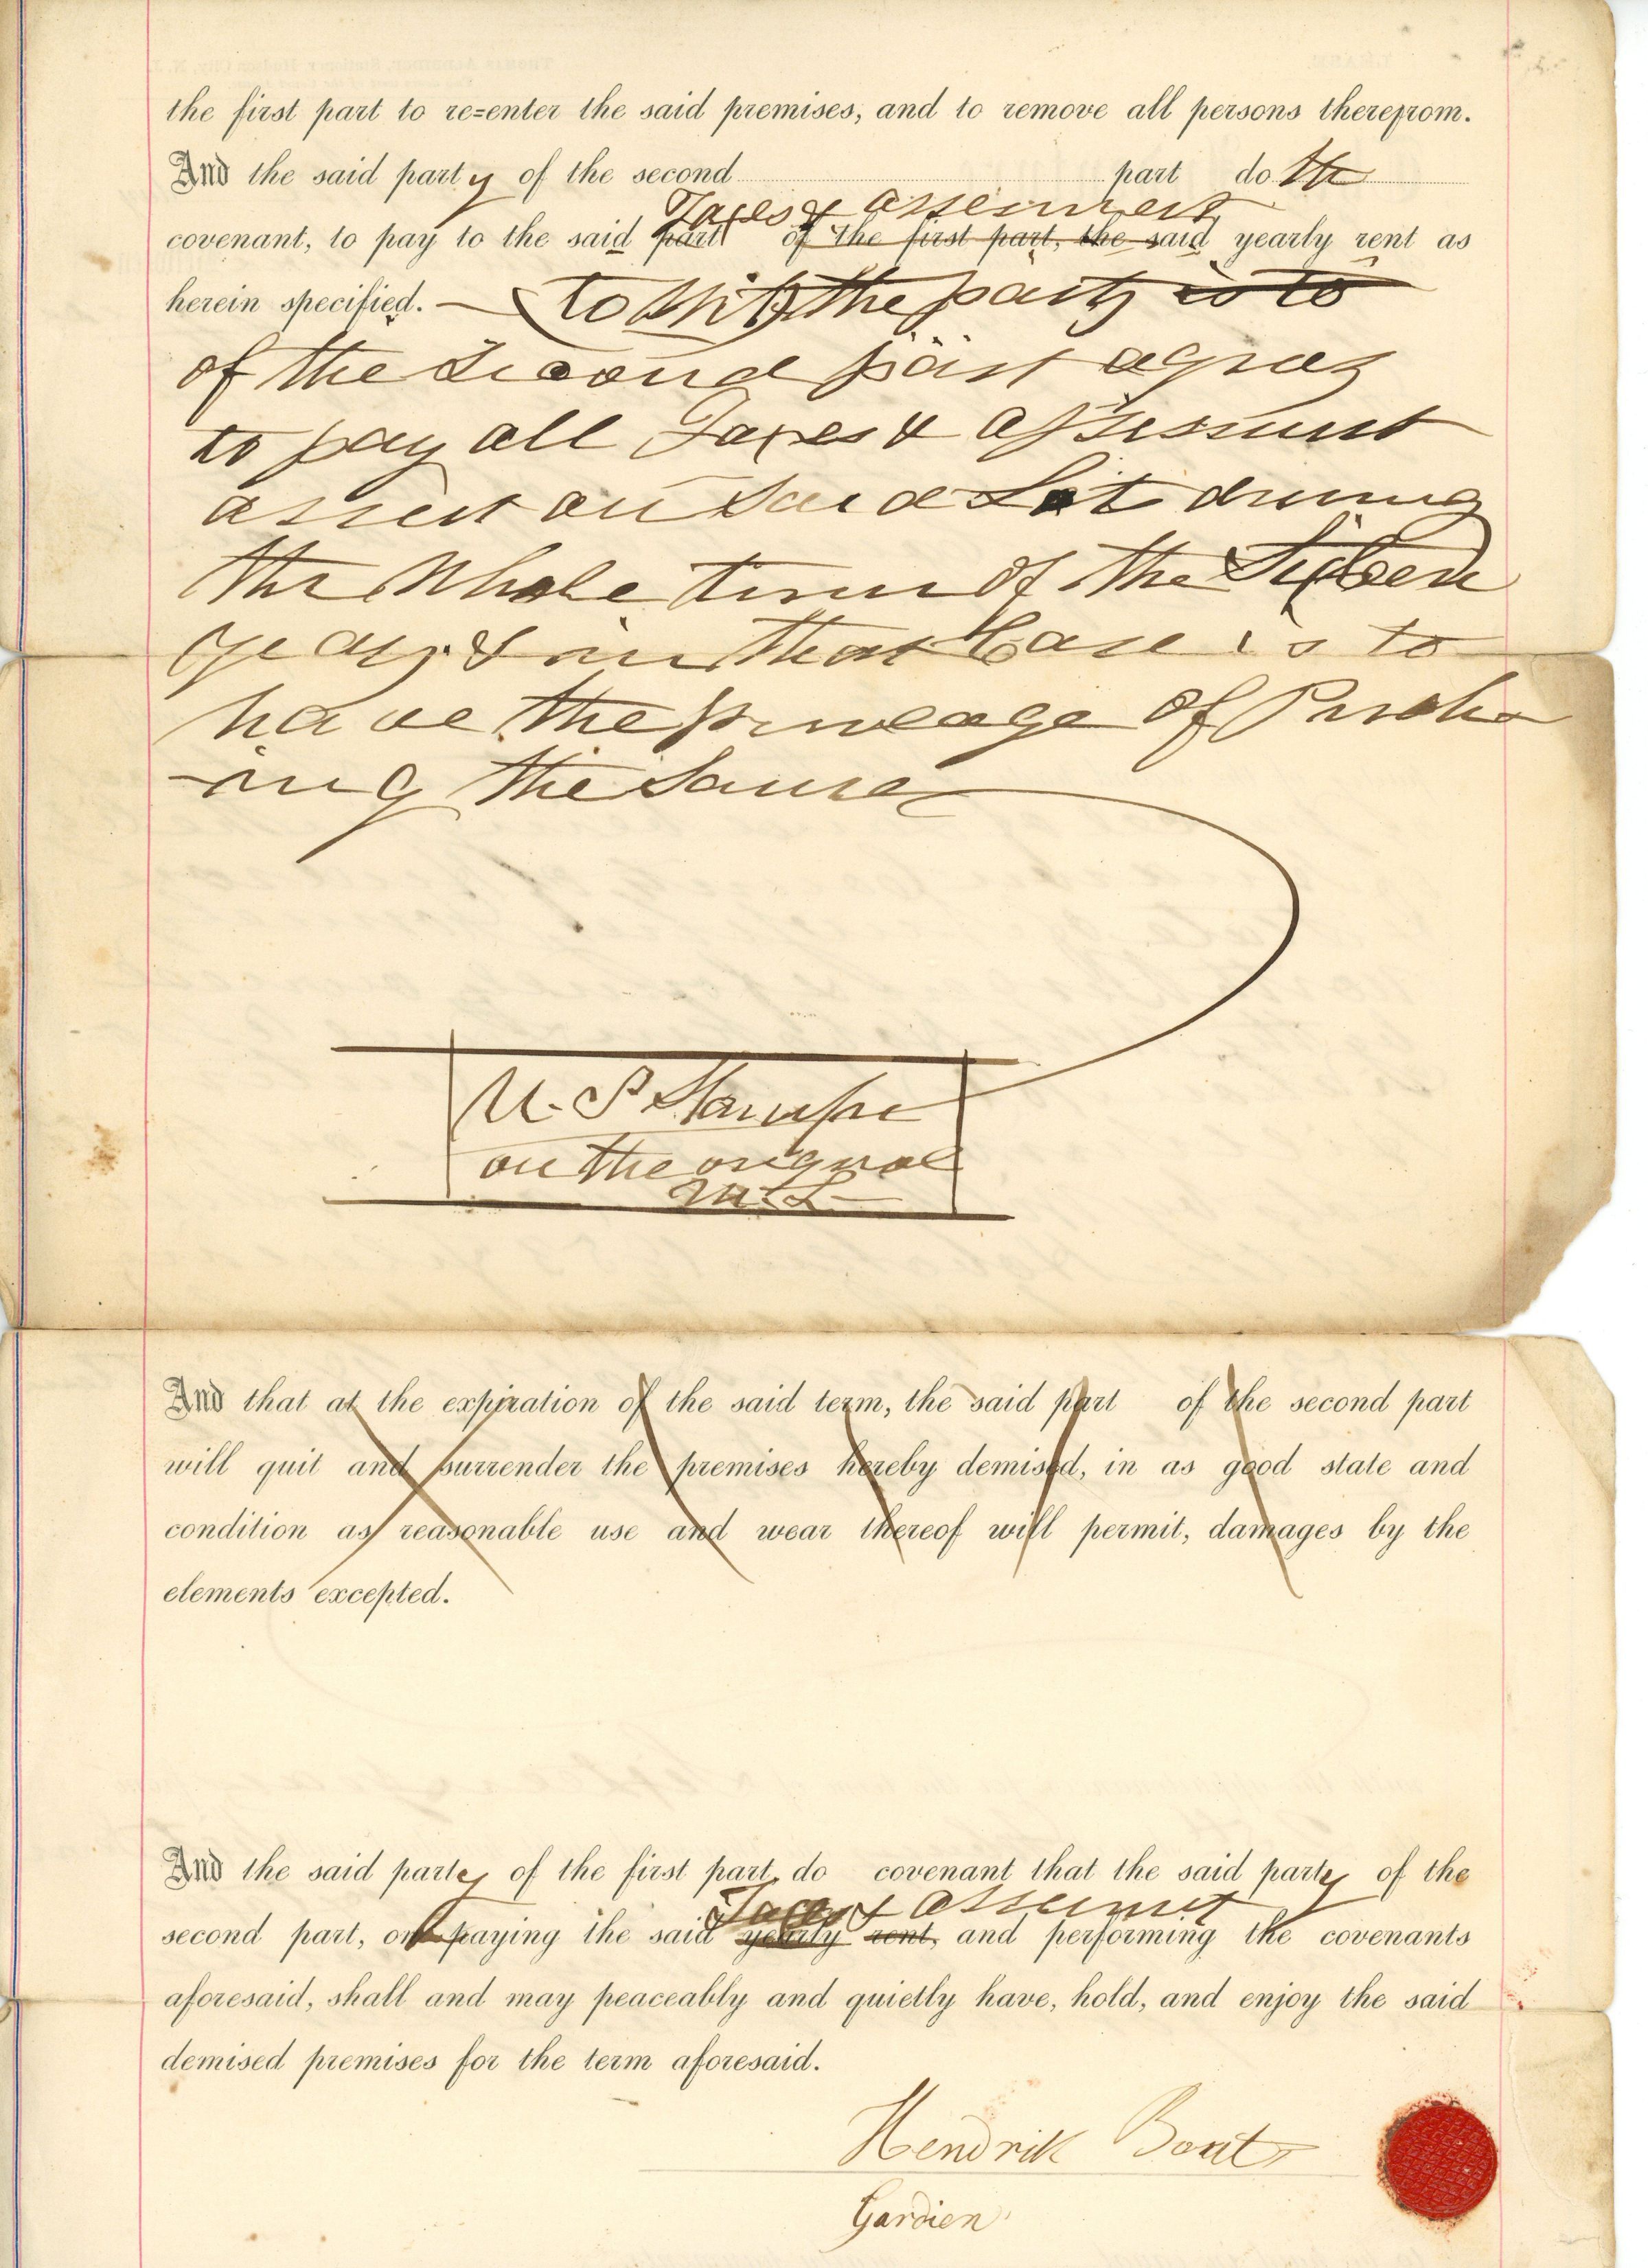 the first part to re=enter the said premises, and to remove all persons therefrom.
And the said party of the second part doth
Taxes & assesment
covenant, to pay to the said part of the first part, the said yearly rent as
herein specified. — to Wit, the party is to
of the Second part agrees
to pay all Taxes & assesment
assest on Said Lot during
the Whole term of the Sixteen
years & in that Case is to
have the privelage of Purchas
-ing the Same
U. S Stampe
on the orignal
And that at the expiration of the said term, the said part of the second part
will quit and surrender the premises hereby demised, in as good state and
condition as reasonable use and wear thereof will permit, damages by the
elements excepted.
And the said party of the first part do covenant that the said party of the
Taxes & assesmet
second part, on paying the said yearly rent, and performing the covenants
aforesaid, shall and may peaceably and quietly have, hold, and enjoy the said
demised premises for the term aforesaid.
Hendrik Bont
Gardien